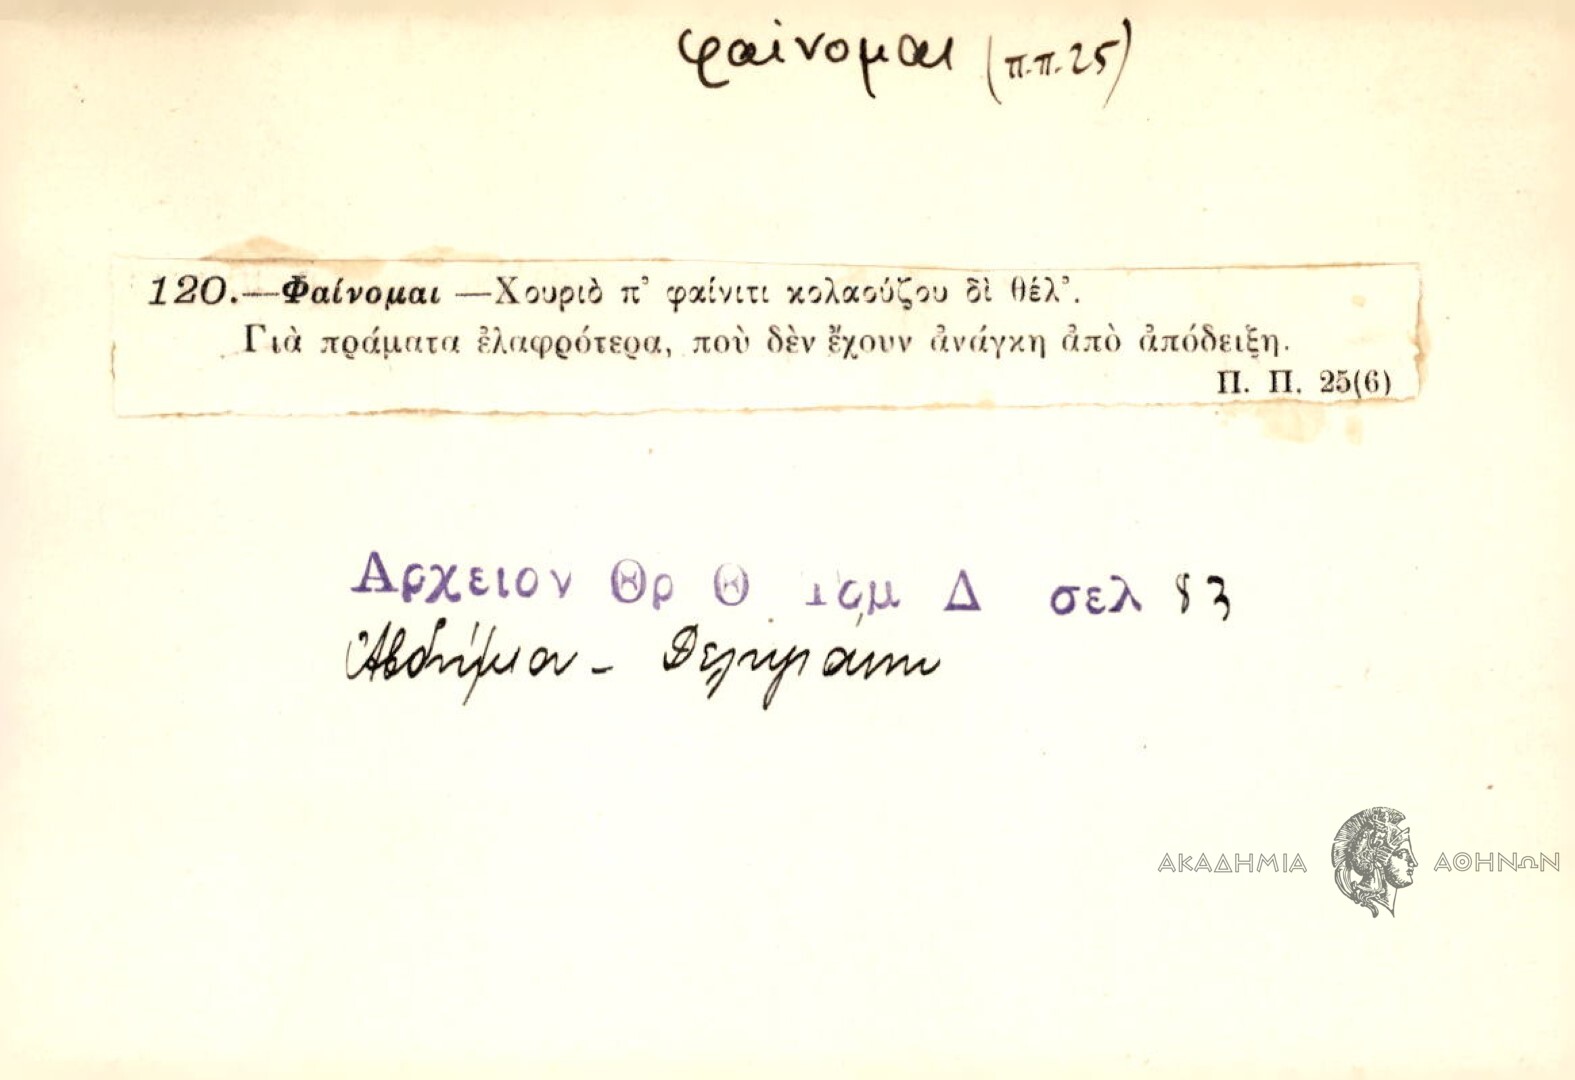 φαίνομαι (π.π. 25)
120.—Φαίνομαι —Χουριὸ π' φαίνιτι κολαούζου δὶ θέλ'.
Γιὰ πράματα ἐλαφρότερα, ποὺ δὲν ἔχουν ἀνάγκη ἀπὸ ἀπόδειξη.
Π. Π. 25(6)
Αρχειον Θρ Θ Τομ Δ σελ 83
Αὐδήμιον -
ΑΚΑΔΗΜΙΑ ΑΘΗΝΩΝ